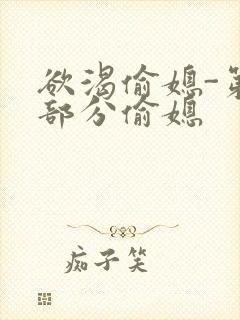 欲渴偷媳-第
部分偷媳
痴子笑